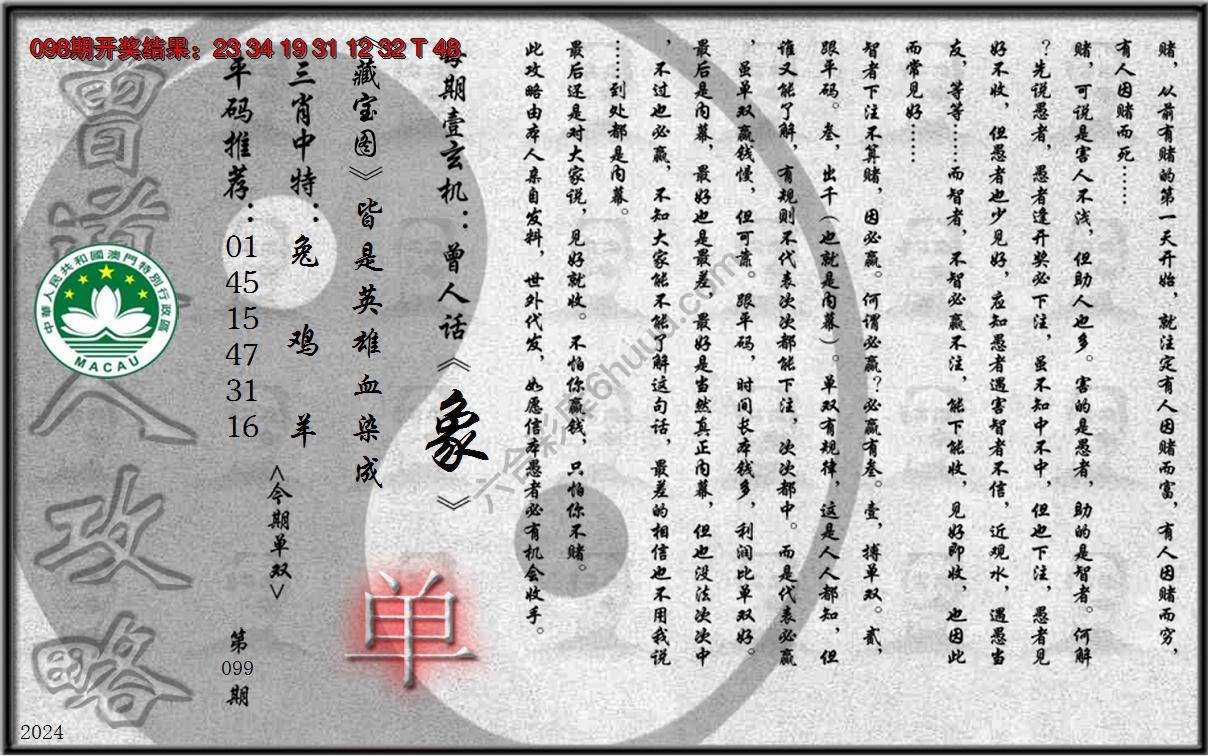 098期开奖结果：23 34 19 31 12 32 T 48
赌，从前有赌的第一天开始，就注定有人因赌而富，有人因赌而穷，
有人因赌而死……
赌，可说是害人不浅，但助人也多。害的是愚者，助的是智者。何解
？先说愚者，愚者逢开奖必下注，虽不知中不中，但也下注，愚者见
好不收，但愚者也少见好，应知愚者遇害智者不信，近观水，遇愚当
友，等等……而智者，不智必赢不注，能下能收，见好即收，也因此
而常见好……
智者下注不算赌，因必赢。何谓必赢？必赢有叁。壹，搏单双。贰，
跟平码。叁，出千（也就是内幕）。单双有规律，这是人人都知，但
谁又能了解，有规则不代表次次都能下注，次次都中。而是代表必赢
，虽单双赢钱慢，但可靠。跟平码，时间长本钱多，利润比单双好。
最后是内幕，最好也是最差，最好是当然真正内幕，但也没法次次中
，不过也必赢，不知大家能不能了解这句话，最差的相信也不用我说
……到处都是内幕。
最后还是对大家说，见好就收。不怕你赢钱，只怕你不赌。
此攻略由本人亲自发料，世外代发，如愿信本愚者必有机会收手。
每期壹玄机：曾人话《象》
《藏宝图》皆是英雄血染成
三肖中特：兔 鸡 羊
平码推荐：01 45 15 47 31 16
<今期单双>
单
第099期
曾道人攻略
中華人民共和國澳門特別行政區
MACAU
六合彩库6huuu.com
2024